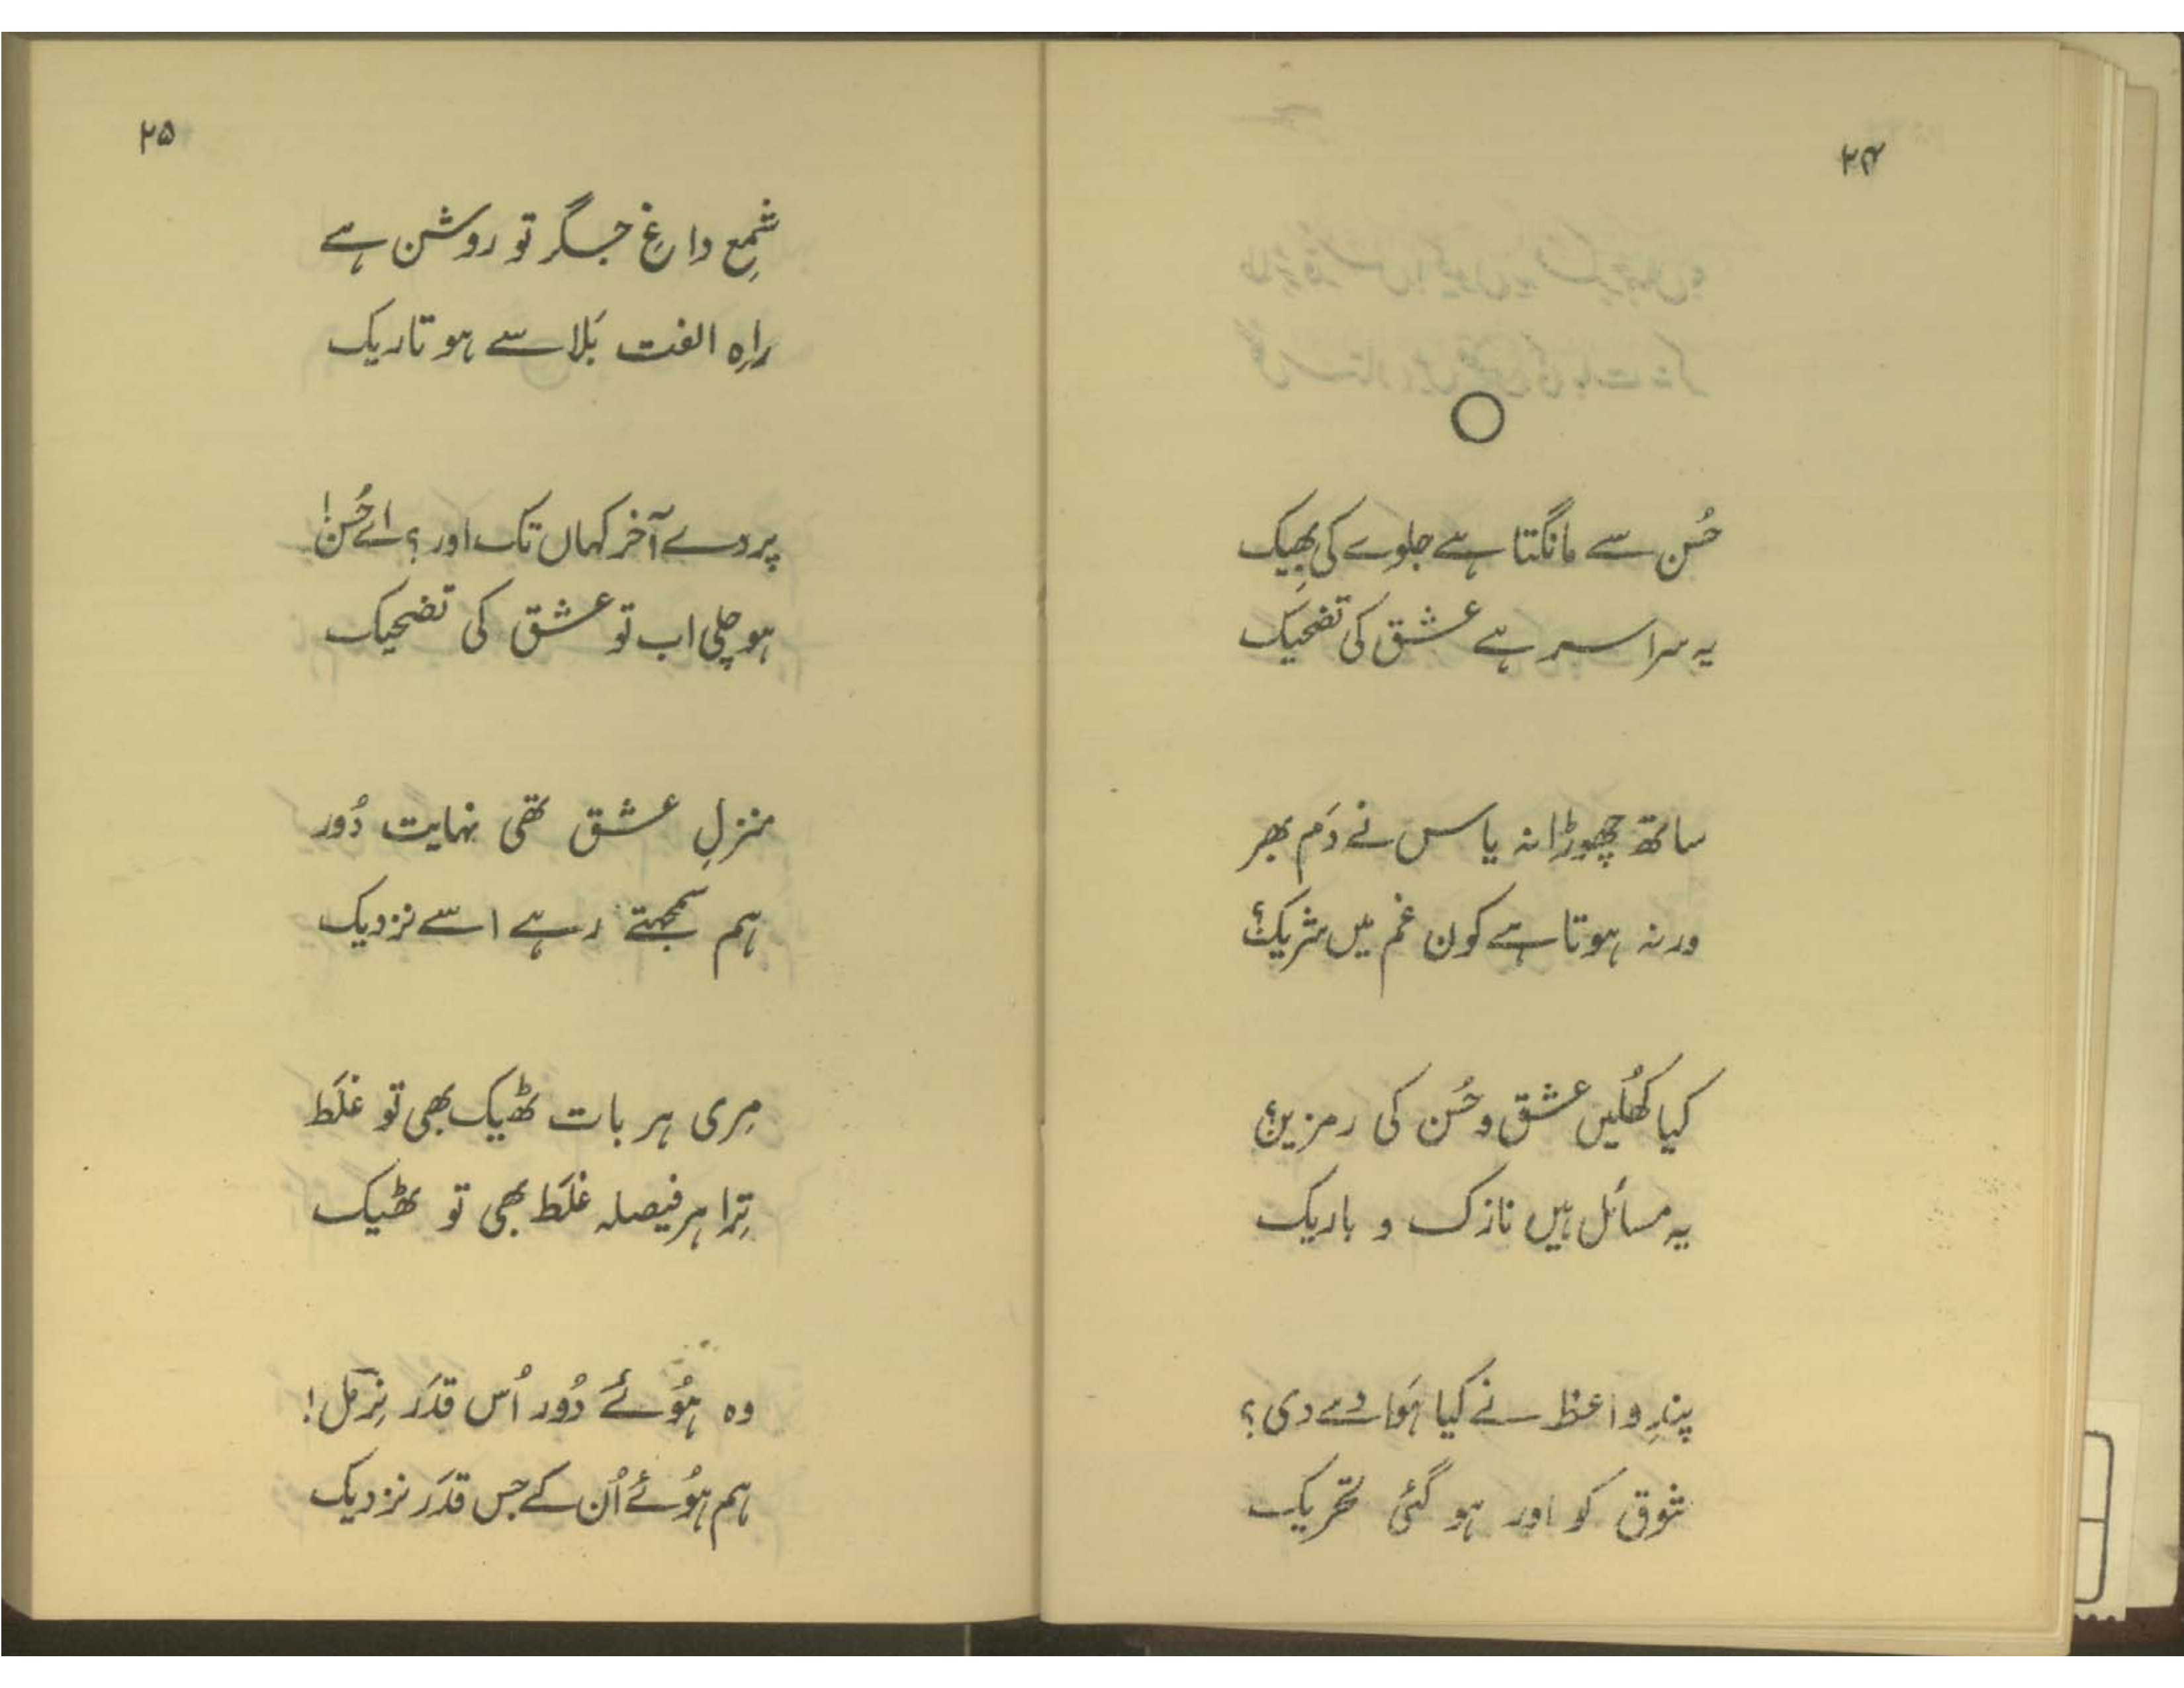 ۲۴
حُسن سے مانگتا ہے جلوے کی بھِیک
یہ سراسر ہے عشق کی تضحیک
ساتھ چھوڑا نہ یاس نے دَم بھر
ورنہ ہوتا ہے کون غم میں شریک؟
کیا کھُلیں عشق و حُسن کی رمزیں؟
یہ مسائل ہیں نازک و باریک
پندِ واعظ نے کیا ہَوا دے دی؟
شوق کو اور ہو گئی تحریک
۲۵
شمعِ داغِ جگر تو روشن ہے
راہِ الفت بَلا سے ہو تاریک
پردے آخر کہاں تک اور؟ اے حُسن!
ہو چلی اب تو عشق کی تضحیک
منزلِ عشق تھی نہایت دُور
ہم سمجھتے رہے اسے نزدیک
مِری ہر بات ٹھیک بھی تو غلَط
تِرا ہر فیصلہ غلَط بھی تو ٹھیک
وہ ہُوئے دُور اُس قدَر نِرمل!
ہم ہُوئے اُن کے جس قدَر نزدیک